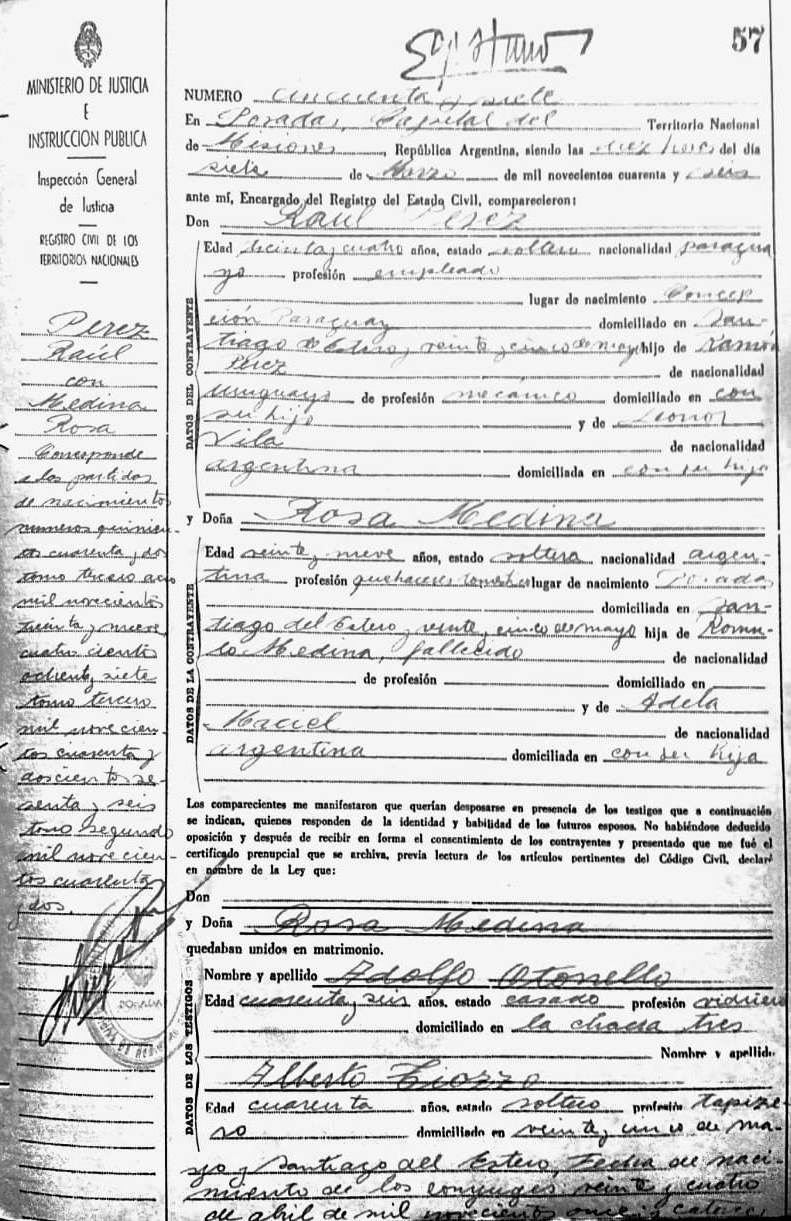 57
MINISTERIO DE JUSTICIA
E
INSTRUCCION PUBLICA
Inspección General
de Justicia
REGISTRO CIVIL DE LOS
TERRITORIOS NACIONALES
Perez
Raúl
con
Medina
Rosa
Corresponde
a las partidas
de nacimientos
numeros quinien-
tos cuarenta y dos
tomo tercero año
mil novecientos
treinta y nueve
cuatro cientos
ochenta y siete
tomo tercero
mil novecien-
tos cuarenta y
doscientos se-
senta y seis
tomo segundo
mil novecien-
tos cuarenta
y dos.
NUMERO cincuenta y siete
En Posadas, Capital del Territorio Nacional
de Misiones, República Argentina, siendo las diez horas del día
siete de Marzo de mil novecientos cuarenta y seis
ante mí, Encargado del Registro del Estado Civil, comparecieron:
Don Raúl Perez
DATOS DEL CONTRAYENTE
Edad treinta y cuatro años, estado soltero nacionalidad paragua
yo profesión empleado
lugar de nacimiento Concep
ción Paraguay domiciliado en San-
tiago de Estero y veinte y cinco de mayo hijo de Ramón
Perez de nacionalidad
uruguayo de profesión mecánico domiciliado en con
su hijo y de Leonor
Vila de nacionalidad
argentina domiciliada en con su hijo
y Doña Rosa Medina
DATOS DE LA CONTRAYENTE
Edad veinte y nueve años, estado soltera nacionalidad argen-
tina profesión quehaceres domésticos lugar de nacimiento Posadas
domiciliada en San-
tiago del Estero y veinte y cinco de mayo hija de Romu-
lo Medina, fallecido de nacionalidad
de profesión domiciliado en
y de Adela
Maciel de nacionalidad
argentina domiciliada en con su hija
Los comparecientes me manifestaron que querían desposarse en presencia de los testigos que a continuación
se indican, quienes responden de la identidad y habilidad de los futuros esposos. No habiéndose deducido
oposición y después de recibir en forma el consentimiento de los contrayentes y presentado que me fué el
certificado prenupcial que se archiva, previa lectura de los artículos pertinentes del Código Civil, declaré
en nombre de la Ley que:
Don
y Doña Rosa Medina
quedaban unidos en matrimonio.
DATOS DE LOS TESTIGOS
Nombre y apellido Adolfo Otonello
Edad cuarenta y seis años, estado casado profesión vidriero
domiciliado en la chacra tres
Nombre y apellido
Alberto Tiozzo
Edad cuarenta años, estado soltero profesión tapize-
ro domiciliado en veinte y cinco de ma-
yo y Santiago del Estero, Fecha de naci-
miento de los conyuges veinte y cuatro
de abril de mil novecientos once y catorce